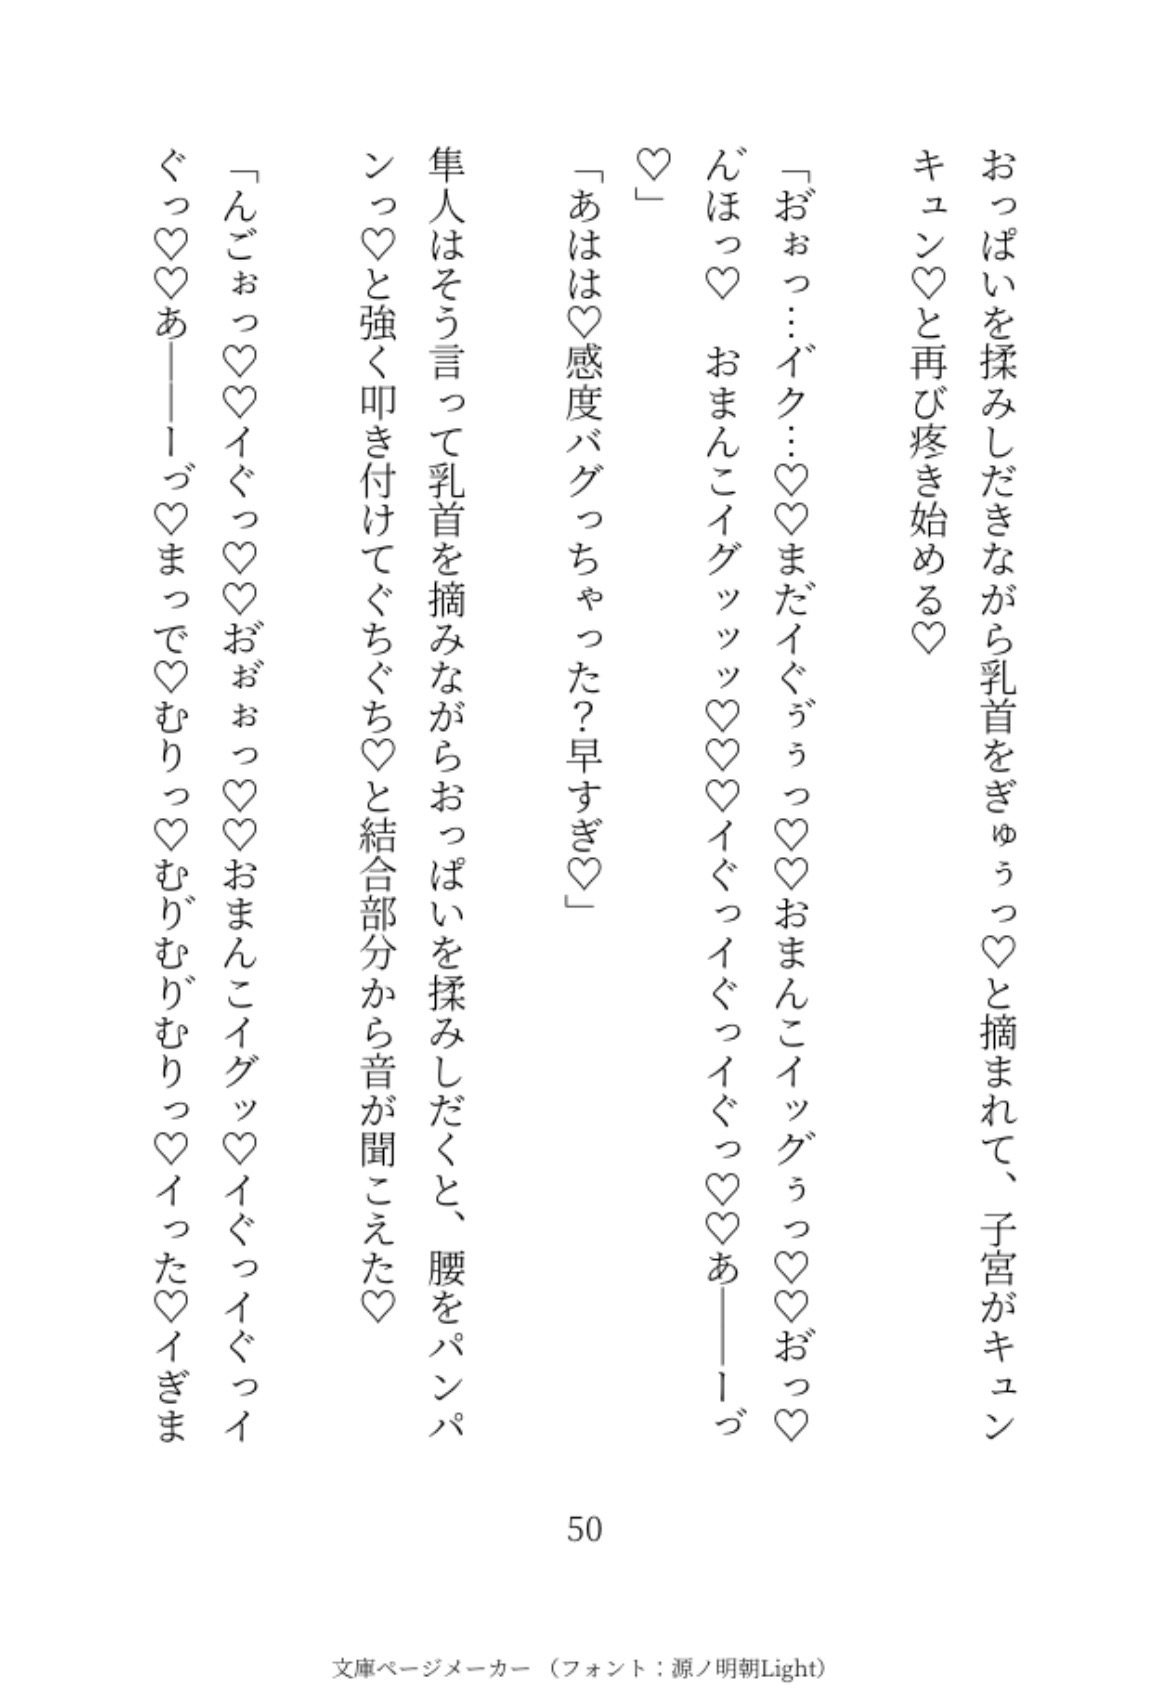 おっぱいを揉みしだきながら乳首をぎゅぅっ♡と摘まれて、子宮がキュン
キュン♡と再び疼き始める♡
「お゙ぉっ…イ゙ク…♡♡まだイぐぅ゙ぅっ♡♡おまんこイッグぅっ♡♡お゙っ♡
ん゙ほっ♡　おまんこイグッッッ♡♡♡イぐっイぐっイぐっ♡♡あ――ーっ゙
♡」
「あはは♡感度バグっちゃった？早すぎ♡」
隼人はそう言って乳首を摘みながらおっぱいを揉みしだくと、腰をパンパ
ンっ♡と強く叩き付けてぐちぐち♡と結合部分から音が聞こえた♡
「んごぉっ♡♡イぐっ♡♡お゙ぉ゙ぉっ♡♡おまんこイグッ♡イぐっイぐっイ
ぐっ♡♡あ――ーっ゙♡まっで♡むりっ♡むり゙むり゙むりっ♡イった♡イぎま
50
文庫ページメーカー （フォント：源ノ明朝Light）